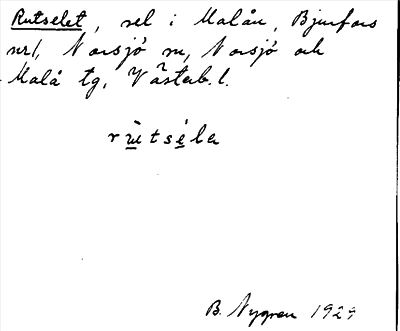 Rutselet, sel i Malån, Bjurfors
nr1, Norsjö sn, Norsjö och
Malå tg, Västerb. l.
rùtséla
B. Nygren 1929